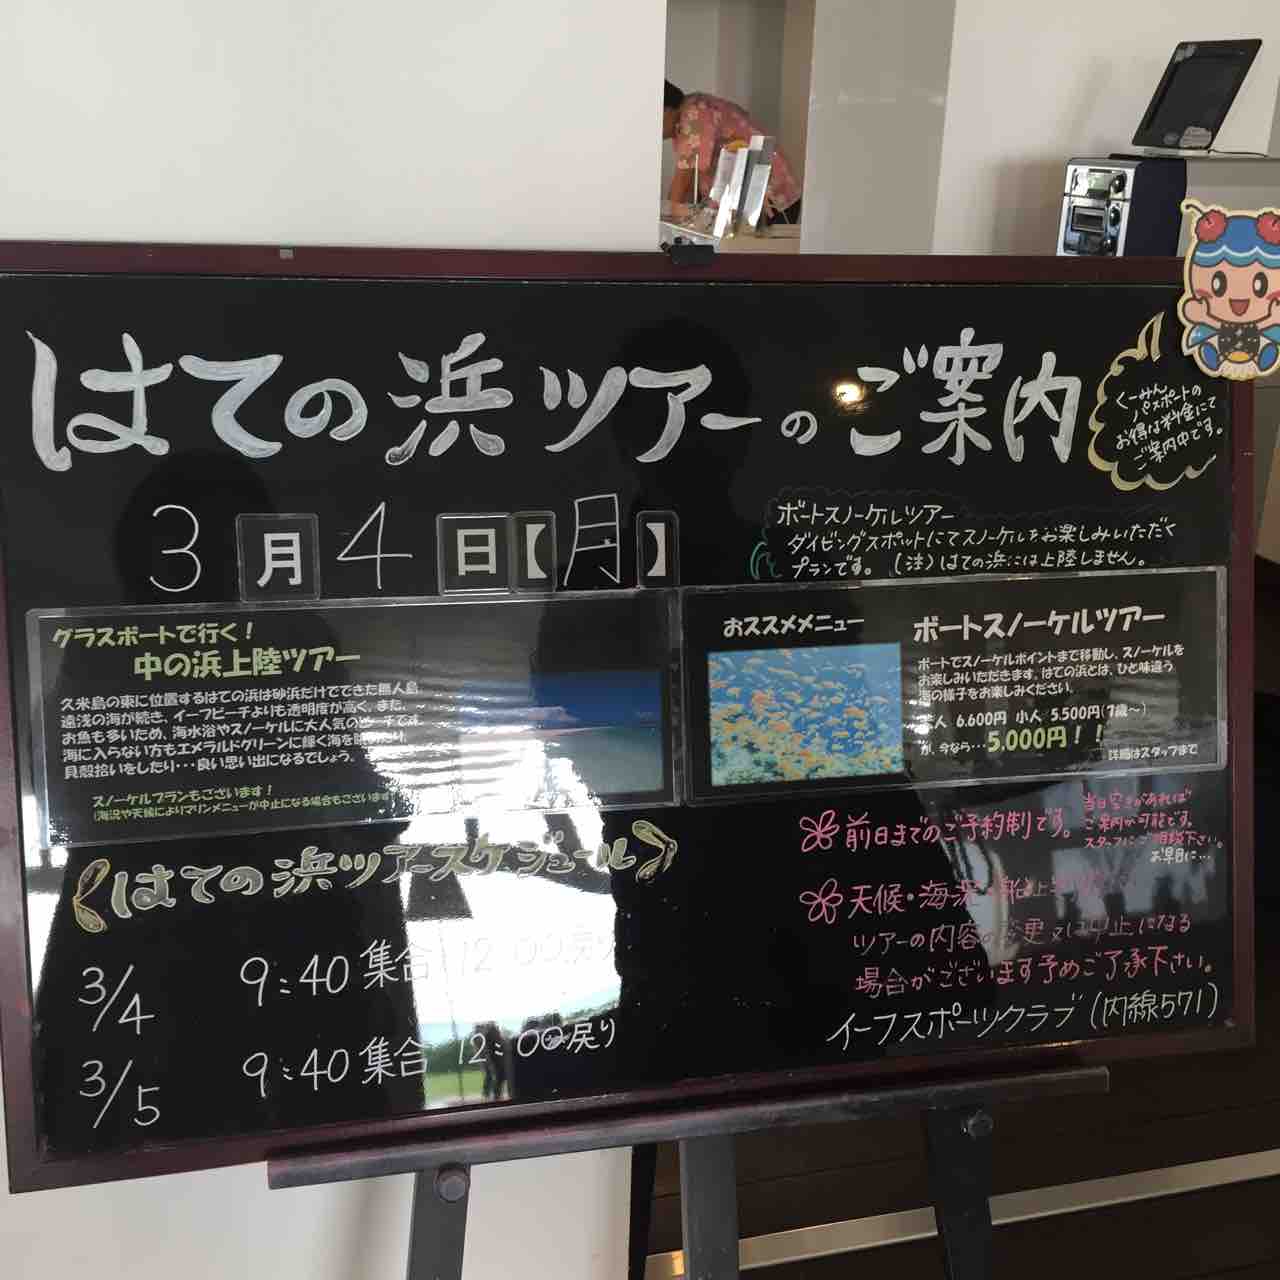 はての浜ツアーのご案内
くーみん
パスポートの
お得な料金にて
ご案内中です。
3月4日【月】
ボートスノーケルツアー
ダイビングスポットにてスノーケルをお楽しみいただく
プランです。(注)はての浜には上陸しません。
グラスボートで行く!
中の浜上陸ツアー
久米島の東に位置するはての浜は砂浜だけでできた無人島。
遠浅の海が続き、イーフビーチよりも透明度が高く、また、
お魚も多いため、海水浴やスノーケルに大人気のビーチです。
海に入らない方もエメラルドグリーンに輝く海を眺めたり、
貝殻拾いをしたり・・・良い思い出になるでしょう。
スノーケルプランもございます!
(海況や天候によりマリンメニューが中止になる場合もございます
おススメメニュー
ボートスノーケルツアー
ボートでスノーケルポイントまで移動し、スノーケルを
お楽しみいただきます。はての浜とは、ひと味違う
海の様子をお楽しみください。
大人 6.600円 小人 5.500円(7歳~)
が、今なら・・・5.000円!!
詳細はスタッフまで
<はての浜ツアースケジュール>
3/4 9:40集合 12:00戻り
3/5 9:40集合 12:00戻り
前日までのご予約制です。
当日空きがあれば
ご案内可能です。
スタッフにご相談下さい。
お早目に…
天候・海況・
ツアーの内容の変更又は中止になる
場合がございます予めご了承下さい。
イーフスポーツクラブ(内線571)